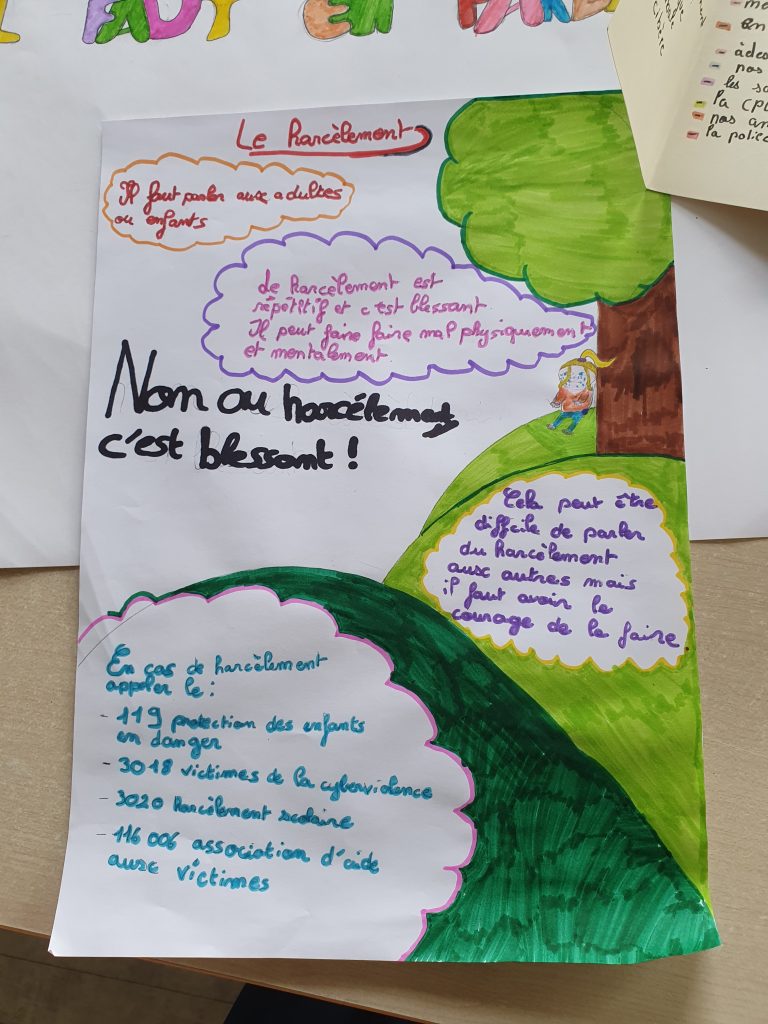 FAUT EN PARL
Le harcèlement
Il faut parler aux adultes
ou enfants
Le harcèlement est
répétitif et c'est blessant.
Il peut faire faire mal physiquement
et mentalement.
Nom au harcélement
c'est blessant !
Cela peut être
difficile de parler
du harcèlement
aux autres mais
il faut avoir le
courage de le faire
En cas de harcèlement
appeler le :
- 119 protection des enfants
en danger
- 3018 victimes de la cyberviolence
- 3020 harcèlement scolaire
- 116 006 association d'aide
aux victimes
- nos
la CPE
- nos am
- la police